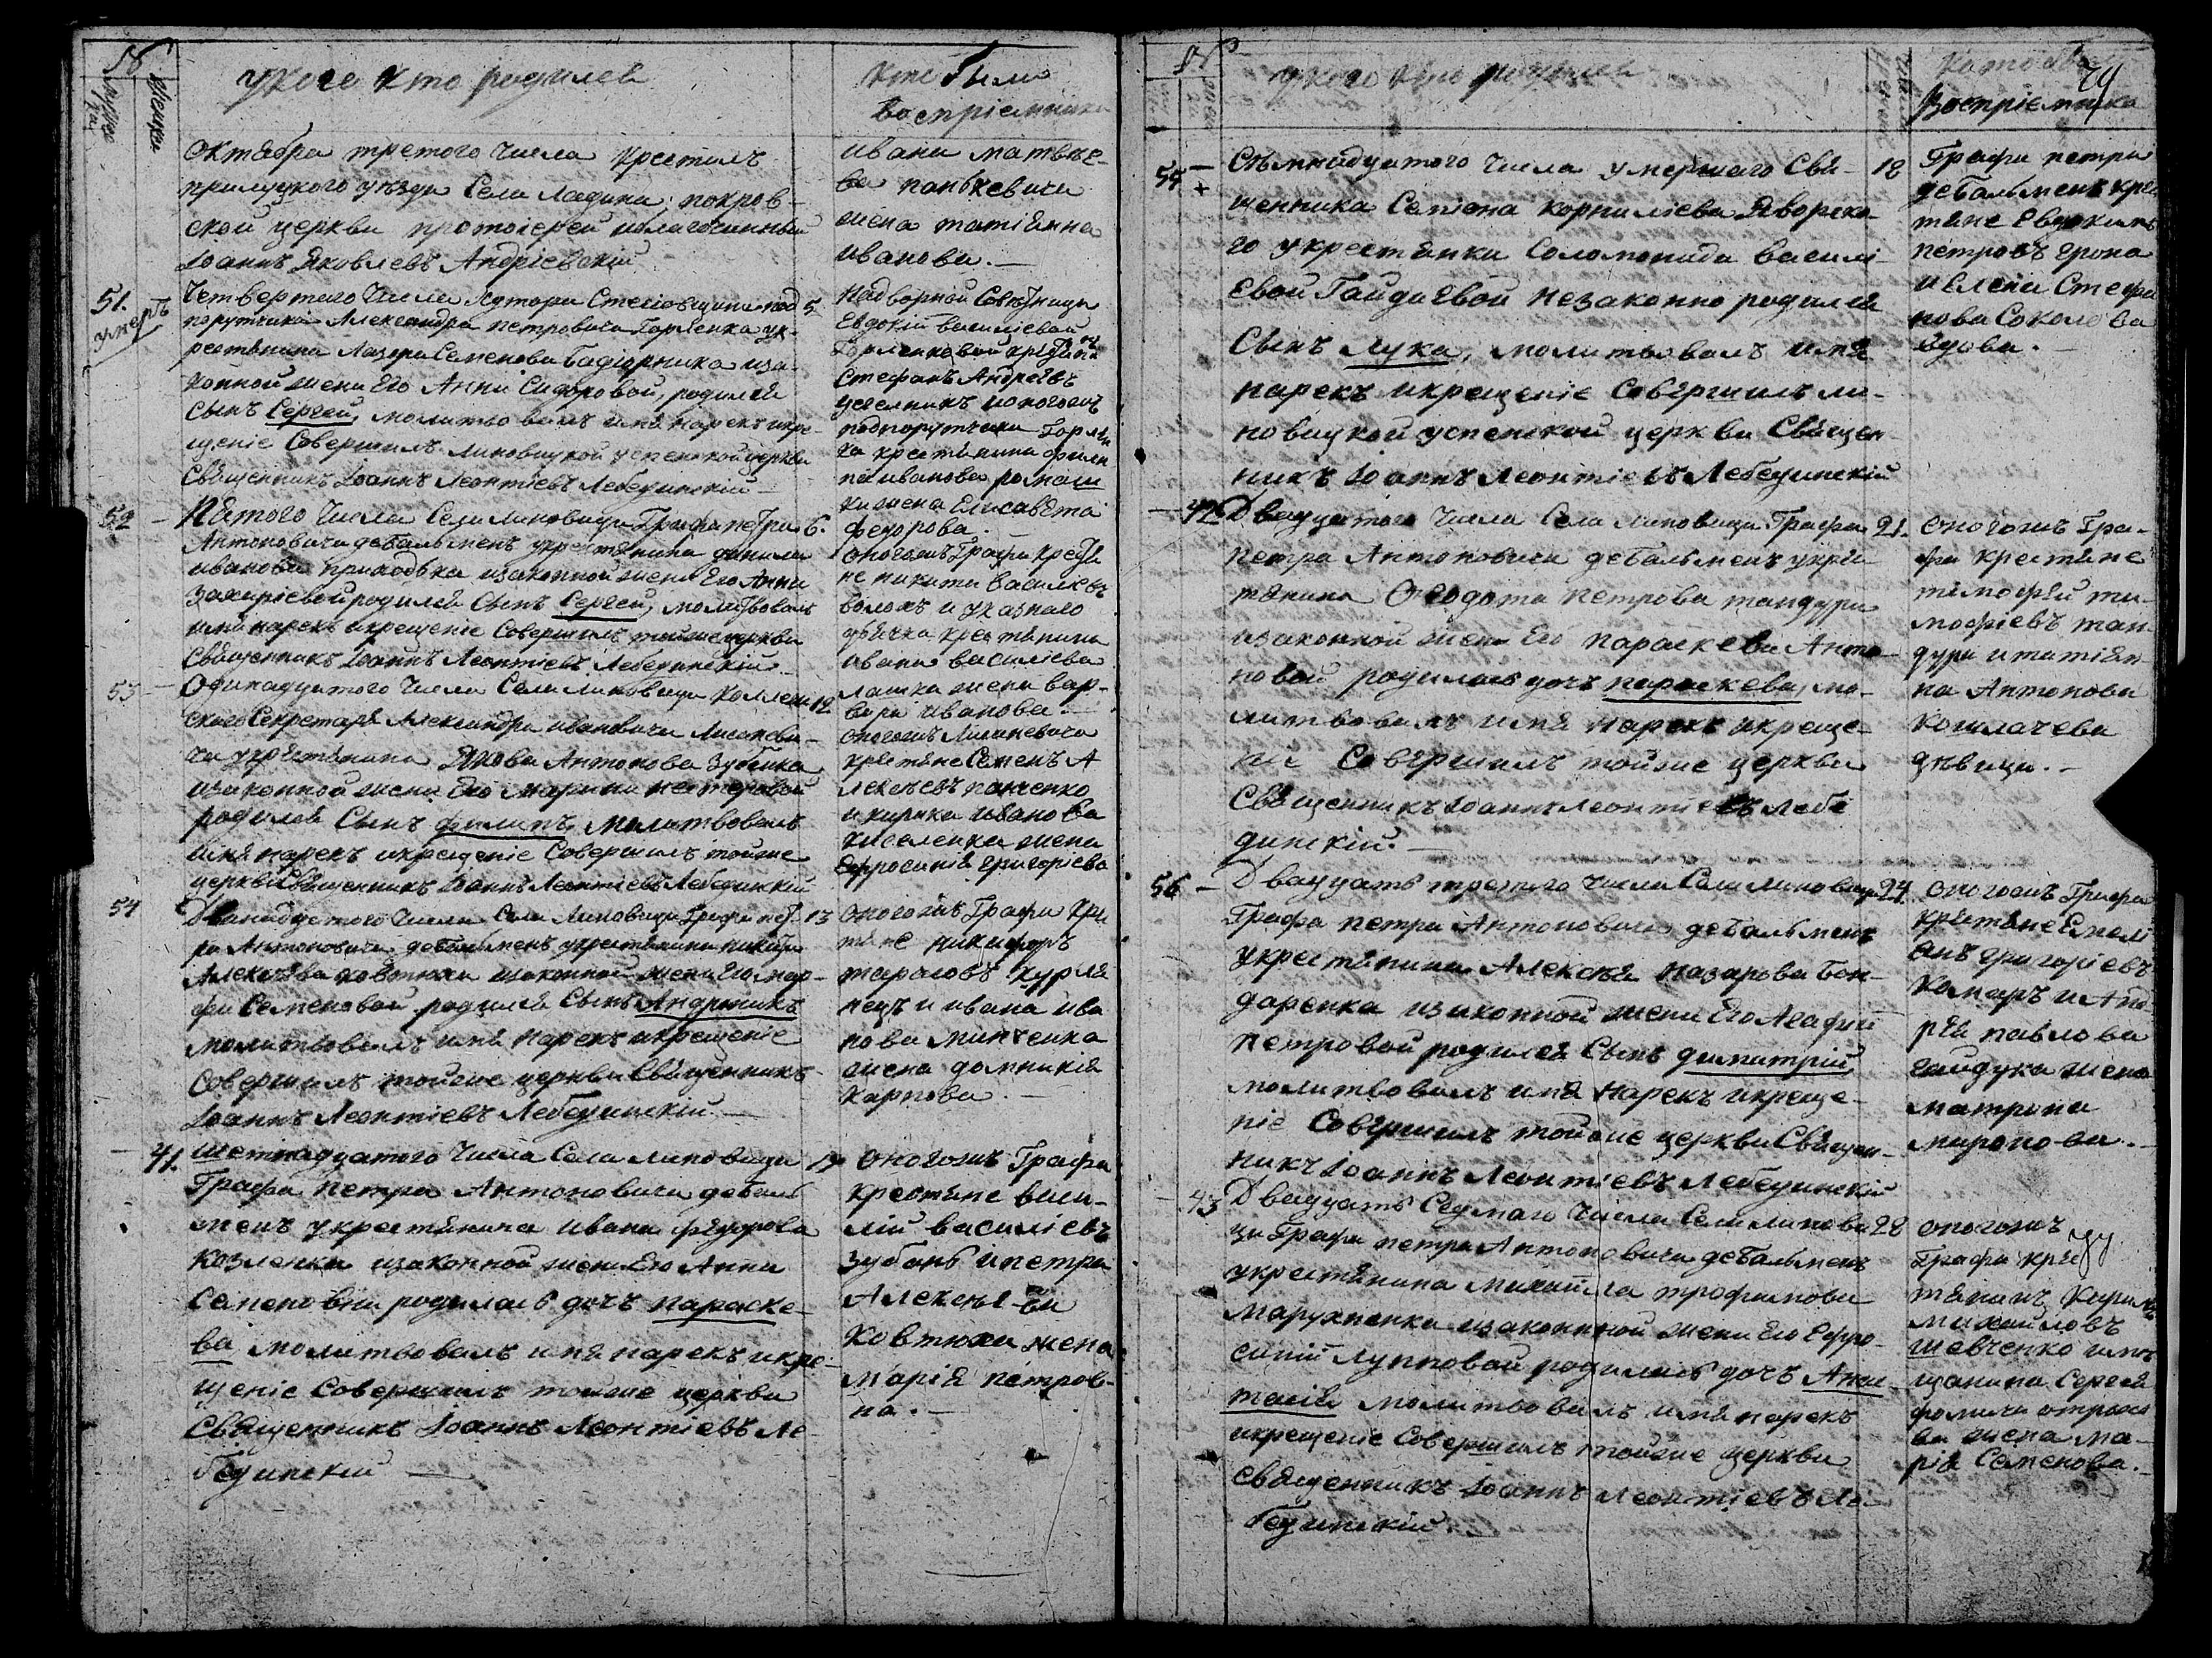 18
Мужес
Женска
у кого кто родился
кто были
воспріемники
Октября третого числа крестилъ
прилуцкого уѣзда Села Ладина покров-
ской церкви протоіерей и благочинный
Іоаннъ Яковлевъ Андріевскій
ивана матвѣе-
ва панкевича
жена татіянна
иванова.
51.
умеръ
Четвертаго числа хутора под
5.
порутчика Александра петровича Горленка у к-
рестянина Лазора Семенова иза-
конной жени Его Анни Сидоровой, родился
Сынъ Сергей, молитвовалъ имя нарекъ и кре-
щеніе Совершилъ линовицкой успенской церкви
Священникъ Іоаннъ Леонтіевъ Лебединскій
Надворной Совѣтници
Евдокіи василіевой
Горленковой крестян
Стефанъ Андреевъ
и оногожъ
подпорутчика Горлен
ка крестянина фили
па иванова ромаш
ки жена Елисавета
федорова.
52
Пятого числа Села линовици Графа петра
6.
Антоновича дебалменъ у крестянина данила
иванова приходка и законной жени Его Анни
Захаріевой родился Сынъ Сергей, молитвовалъ
имя нарекъ и крещеніе Совершилъ тойже церкви
Священникъ Іоаннъ Леонтіевъ Лебединскій
оногожъ Графа крестя
не никита Василіевъ
волокъ и указного
дьячка крестянина
ивана василіева
лашка жена вар-
вара иванова.
53
Одинадцатого числа Села линовици коллеж
12
ского Секретаря Александра ивановича Лисаневи-
ча у крестянина Якова Антонова Зубенка
и законной жени Его марини нестеровой
родился Сынъ филипъ, молитвовалъ
имя нарекъ и крещеніе Совершилъ тойже
церкви Священникъ Іоаннъ Леонтіевъ Лебединскій
оногожъ Лисаневича
крестяне Семенъ А
лексѣевъ панченко
и кирика иванова
киселенка жена
Ефросинія григоріева
54
Дванадцатого числа Села Линовици Графа пет-
13
ра Антоновича дебалменъ у крестянина никити
Алексѣева ковтюха и законной жени Его мар-
фи Семеновой родился Сынъ Андроникъ
молитвовалъ имя нарекъ и крещеніе
Совершилъ тойже церкви Священникъ
Іоаннъ Леонтіевъ Лебединскій
оногожъ Графа кре
тяне никифоръ
тарасовъ Куря
нецъ и ивана ива
нова минченка
жена домникія
Карпова.
41.
шетнадцатого числа Села линовици
17
Графа Петра Антоновича дебаль
менъ у крестянина ивана федорова
Козленка и законной жени Его Анни
Семеновни родилась дочъ параске-
ва молитвовалъ имя нарекъ и кре-
щеніе Совершилъ тойже церкви
Священникъ Іоаннъ Леонтіевъ Ле
бединскій
оногожъ Графа
крестяне васи-
лій василіевъ
Зубань и петра
Алексѣева
Ковтюха жена
марія петров-
на.
у кого кто родился
кто были
79
воспріемники
55
Сѣмнадцатого числа умершаго Свя-
18
щенника Симеона корниліева Яворска-
го у крестянки Соломониди васили
евой Гайдаевой незаконно родился
Сынъ Лука, молитвовалъ имя
нарекъ и крещеніе Совершилъ ли-
новицкой успенской церкви Священ-
никъ Іоаннъ Леонтіевъ Лебединскій
Графа петра
дебальменъ крес
тяне Евдокимъ
петровъ грона
и Елена Стефа
нова Соколова
вдова.
42
Двадцатого числа Села линовици Графа
21.
петра Антоновича дебальменъ у крес
тянина Феодота петрова тандури
и законной жени Его параскеви Анто-
новой родилась дочъ параскева, мо-
литвовалъ имя нарекъ и креще-
ніе Совершилъ тойже церкви
Священникъ Іоаннъ Леонтіевъ Лебе
динскій.
оногожъ Гра-
фа крестяне
тимофей ти-
мофіевъ тан-
дура и татіян-
на Антонова
Колпачева
дѣвица.
56
Двадцать третого числа Села Линовици
24.
Графа петра Антоновича дебальменъ
у крестянина Алексѣя назарова Бон-
даренка и законной жени Его Агафіи
петровой родился Сынъ димитрій
молитвовалъ имя нарекъ и креще-
ніе Совершилъ тойже церкви Священ-
никъ Іоаннъ Леонтіевъ Лебединскій
оногожъ Графа
крестяне Емелі
анъ григоріевъ
Комаръ и Анд
рея павлова
гайдука жена
матрона
миронова.
43
Двадцать Седмаго числа Села линови
28
ци Графа петра Антоновича дебальменъ
у крестянина михаила трофимова
марухненка и законной жени Его Ефро-
синіи Лупповой родилась дочъ Анас-
тасія молитвовалъ имя нарекъ
и крещеніе Совершилъ тойже церкви
Священникъ Іоаннъ Леонтіевъ Ле-
бединскій
оногожъ
Графа крес
тянинъ Кирилъ
михайловъ
шевченко и мѣ
щанина Сергея
фомича
жена ма-
рія Семенова.